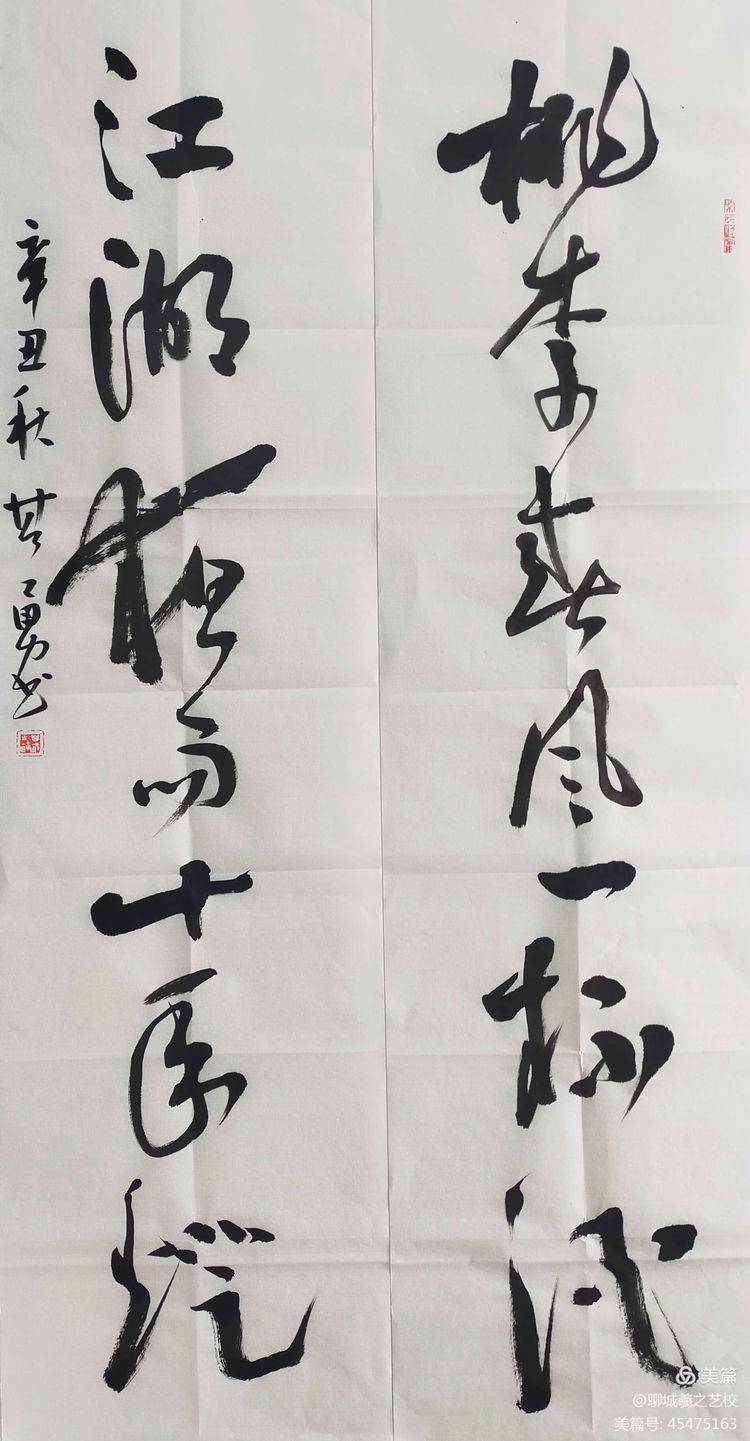 桃李春风一杯酒
江湖夜雨十年燈
辛丑秋 勇书
美篇
@聊城羲之艺校
美篇号: 45475163